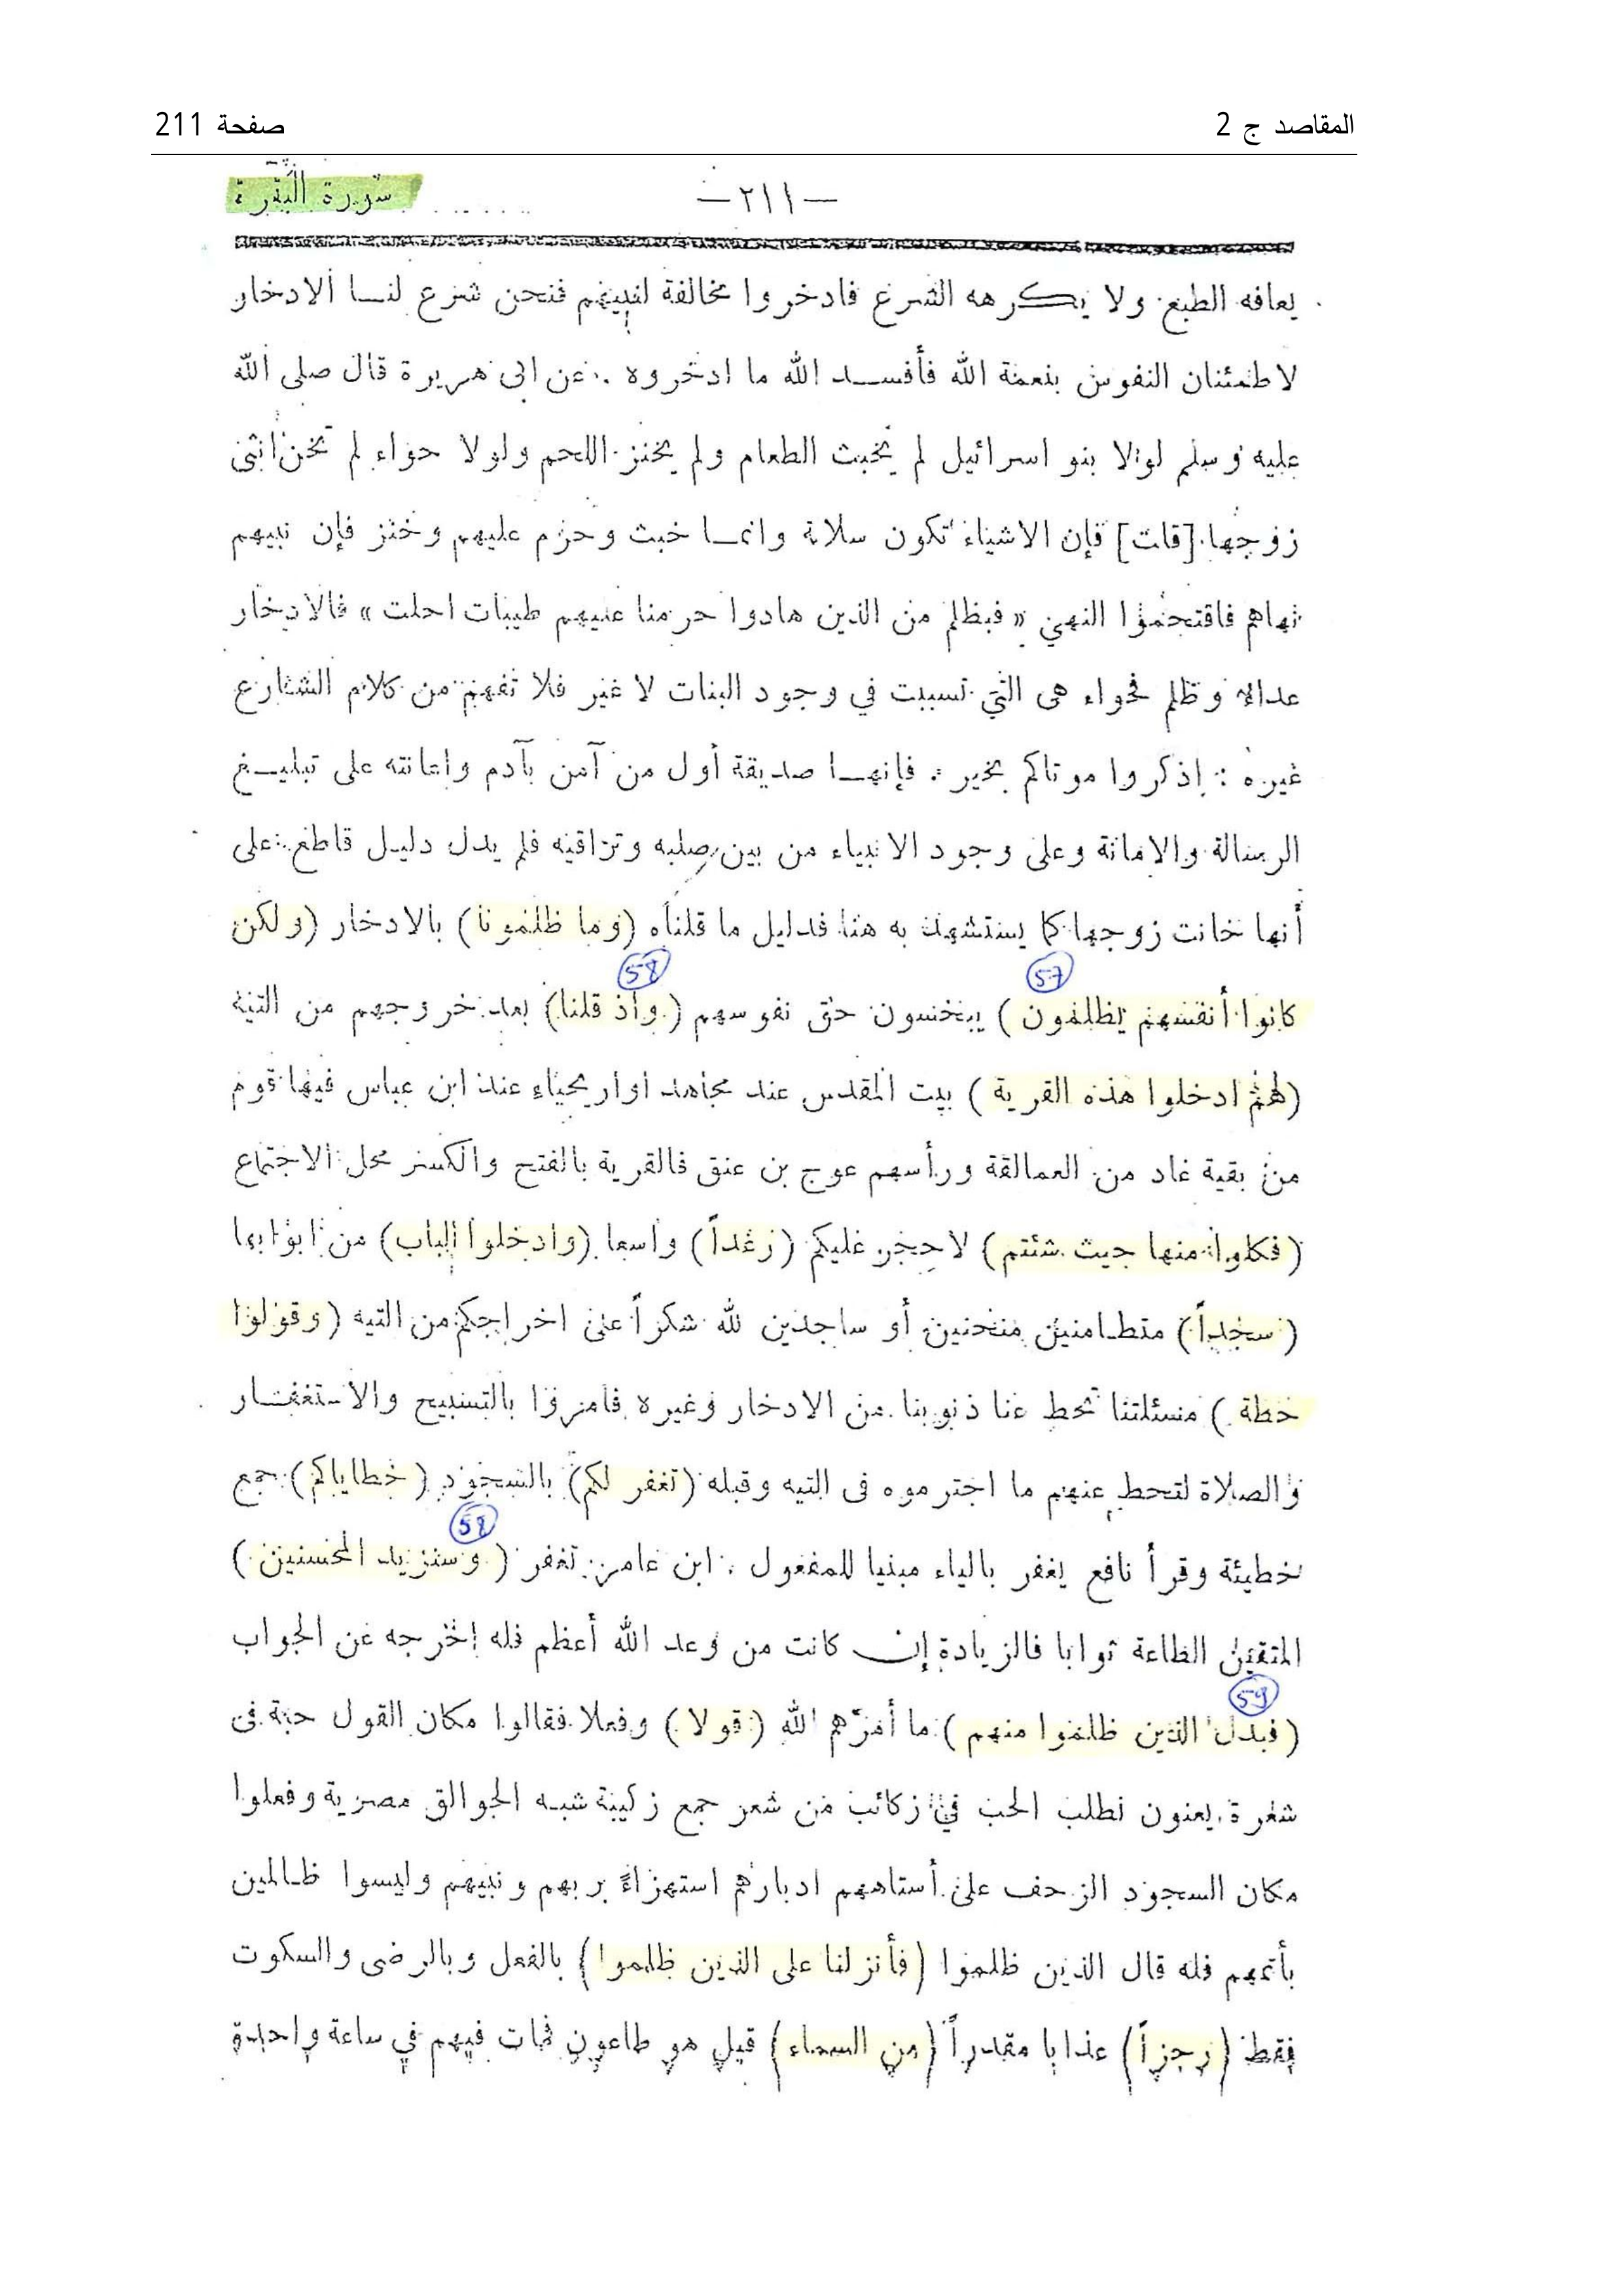 المقاصد ج 2 صفحة 211
—٢١١— سورة البقرة
يعافه الطبع ولا يكرهه الشرع فادخروا مخالفة لنبيهم فنحن شرع لنا الادخار
لاطمئنان النفوس بنعمة الله فأفسد الله ما ادخروه . عن ابى هريرة قال صلى الله
عليه وسلم لولا بنو اسرائيل لم يخبث الطعام ولم يخنز اللحم ولولا حواء لم تخن انثى
زوجها [قلت] فإن الاشياء تكون سلالة وانما خبث وحرم عليهم وخنز فإن نبيهم
نهاهم فاقتحموا النهي « فبظلم من الذين هادوا حرمنا عليهم طيبات احلت » فالادخار
عدالة وظلم فحواء هى التي تسببت في وجود البنات لا غير فلا تفهم من كلام الشارع
غيره : إذكروا موتاكم بخير . فإنها صديقة أول من آمن بآدم واعانته على تبليغ
الرسالة والامانة وعلى وجود الانبياء من بين صلبه وتراقيه فلم يدل دليل قاطع على
أنها خانت زوجها كما يستشهد به هنا فدليل ما قلناه (وما ظلمونا) بالادخار (ولكن
58 57
كانوا أنفسهم يظلمون) يبخسون حق نفوسهم (وإذ قلنا) بعد خروجهم من التيه
(لهم ادخلوا هذه القرية) بيت المقدس عند مجاهد اواريحياء عند ابن عباس فيها قوم
من بقية عاد من العمالقة ورأسهم عوج بن عنق فالقرية بالفتح والكسر محل الاجتماع
(فكلوا منها حيث شئتم) لا حجر عليكم (رغداً) واسعا (وادخلوا الباب) من ابوابها
(سجداً) متطامنين منحنين أو ساجدين لله شكراً على اخراجكم من التيه (وقولوا
حطة) مسئلتنا تحط عنا ذنوبنا من الادخار وغيره فامروا بالتسبيح والاستغفار
والصلاة لتحط عنهم ما اجترموه فى التيه وقبله (تغفر لكم) بالسجود (خطاياكم) جمع
58
خطيئة وقرأ نافع يغفر بالياء مبنيا للمفعول . ابن عامر تغفر (وسنزيد المحسنين)
المتقين الطاعة ثوابا فالزيادة إن كانت من وعد الله أعظم فله اخرجه عن الجواب
59
(فبدل الذين ظلموا منهم) ما أمرهم الله (قولا) وفعلا فقالوا مكان القول حبة فى
شعرة يعنون نطلب الحب في زكائب من شعر جمع زكيبة شبه الجوالق مصرية وفعلوا
مكان السجود الزحف على أستاههم ادبارهم استهزاءً بربهم ونبيهم وليسوا ظالمين
بأتمهم فله قال الذين ظلموا (فأنزلنا على الذين ظلموا) بالفعل وبالرضى والسكوت
فقط (رجزاً) عذابا مقدراً (من السماء) قيل هو طاعون فمات فيهم في ساعة واحدة